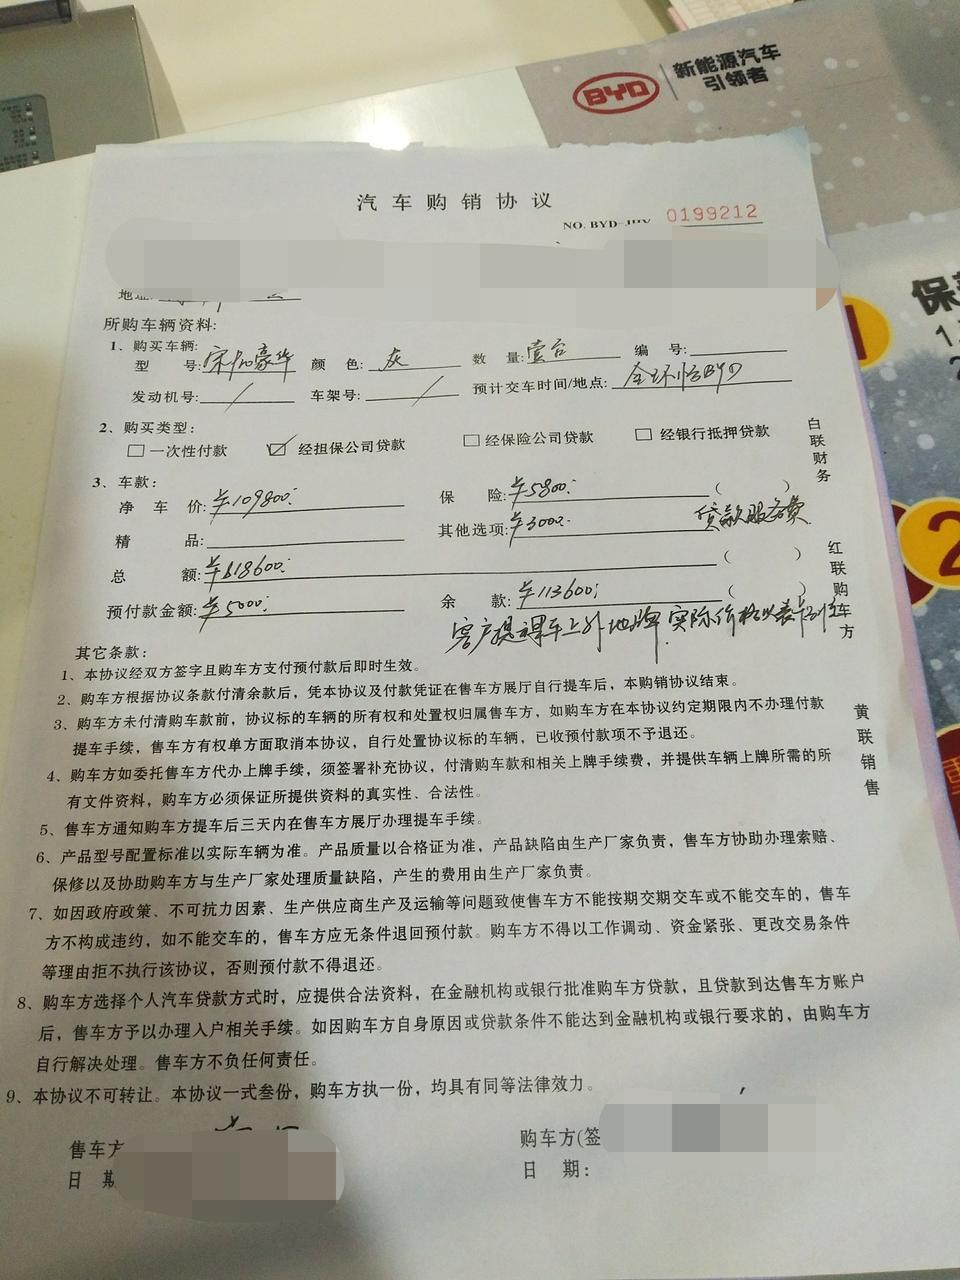 BYD 新能源汽车
引领者
汽车购销协议
NO. BYD
0199212
保
1
1.
2
所购车辆资料:
1、购买车辆:
型 号: 豪华 颜 色: 灰 数 量: 壹台 编 号:
发动机号: / 车架号: / 预计交车时间/地点: BYD
2、购买类型:
□一次性付款 ☑经担保公司贷款 □经保险公司贷款 □经银行抵押贷款
3、车款:
净 车 价: ¥109800: 保 险: ¥5800: ( )
精 品: 其他选项: ¥3000: 贷款服务费
总 额: ¥118600: ( )
预付款金额: ¥5000: 余 款: ¥113600: ( )
客户提裸车上外地牌 实际价格以
白联财务
红联购车方
黄联销售
其它条款:
1、本协议经双方签字且购车方支付预付款后即时生效。
2、购车方根据协议条款付清余款后，凭本协议及付款凭证在售车方展厅自行提车后，本购销协议结束。
3、购车方未付清购车款前，协议标的车辆的所有权和处置权归属售车方，如购车方在本协议约定期限内不办理付款
提车手续，售车方有权单方面取消本协议，自行处置协议标的车辆，已收预付款项不予退还。
4、购车方如委托售车方代办上牌手续，须签署补充协议，付清购车款和相关上牌手续费，并提供车辆上牌所需的所
有文件资料，购车方必须保证所提供资料的真实性、合法性。
5、售车方通知购车方提车后三天内在售车方展厅办理提车手续。
6、产品型号配置标准以实际车辆为准。产品质量以合格证为准，产品缺陷由生产厂家负责，售车方协助办理索赔、
保修以及协助购车方与生产厂家处理质量缺陷，产生的费用由生产厂家负责。
7、如因政府政策、不可抗力因素、生产供应商生产及运输等问题致使售车方不能按期交期交车或不能交车的，售车
方不构成违约，如不能交车的，售车方应无条件退回预付款。购车方不得以工作调动、资金紧张、更改交易条件
等理由拒不执行该协议，否则预付款不得退还。
8、购车方选择个人汽车贷款方式时，应提供合法资料，在金融机构或银行批准购车方贷款，且贷款到达售车方账户
后，售车方予以办理入户相关手续。如因购车方自身原因或贷款条件不能达到金融机构或银行要求的，由购车方
自行解决处理。售车方不负任何责任。
9、本协议不可转让。本协议一式叁份，购车方执一份，均具有同等法律效力。
售车方 购车方(签
日 期 日 期: